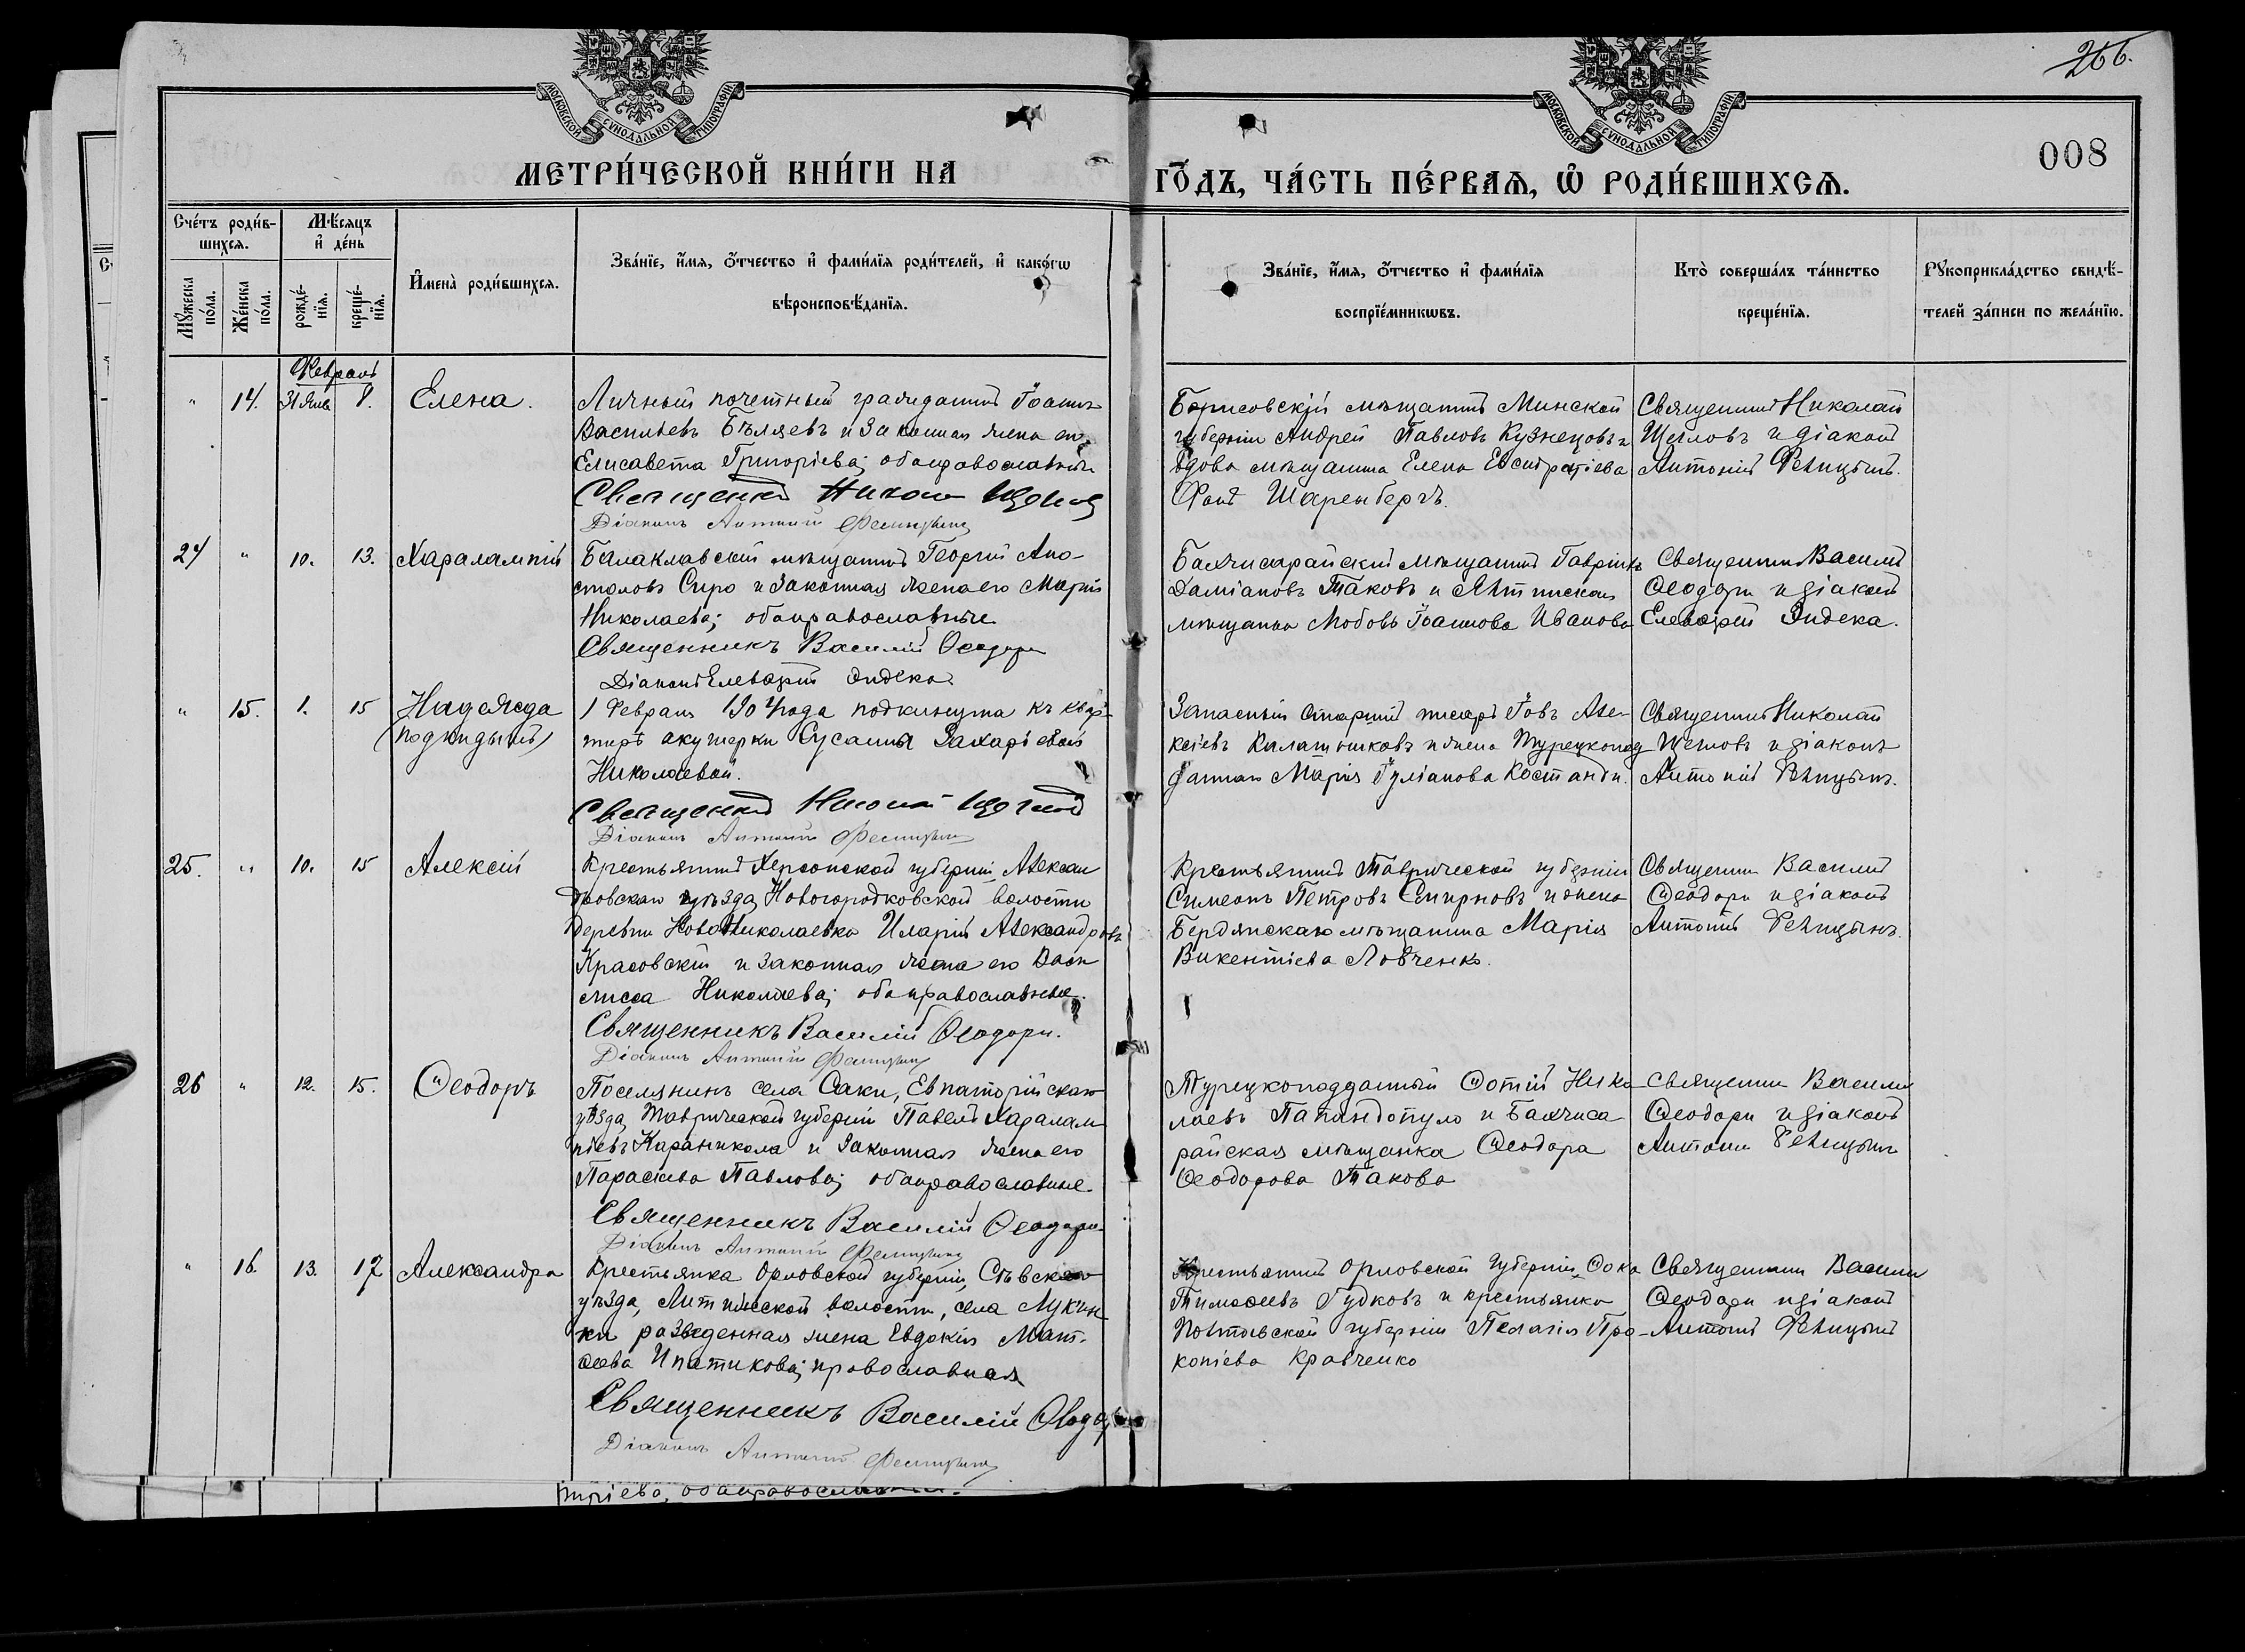 266.
008
МОСКОВСКОЙ СѴНОДАЛЬНОЙ ТИПОГРАФІИ
МОСКОВСКОЙ СѴНОДАЛЬНОЙ ТИПОГРАФІИ
МЕТРИ́ЧЕСКОЙ КНИ́ГИ НА
ГО́ДЪ, ЧА́СТЬ ПЕ́РВАЯ, Ѡ РОДИ́ВШИХСЯ.
Сче́тъ роди́в-
шихся.
Мѣ́сяцъ
и де́нь
Мꙋ́жеска по́ла.
Же́нска по́ла.
рожде́-
нїя.
креще́-
нїя.
И҆мена̀ роди́вшихся.
Зва́нїе, и҆́мя, ѻ҆́тчество и҆ фами́лїя роди́телей, и҆ како́гѡ
вѣроисповѣ́данїя.
Зва́нїе, и҆́мя, ѻ҆́тчество и҆ фами́лїя
воспрїе́мникѡвъ.
Кто̀ соверша́лъ та́инство
креще́нїя.
Рꙋкоприкла́дство свидѣ́-
телей за́писи по жела́нїю.
Февраль
" 14. 31 Янв 8. Елена.
Личный почетный гражданинъ Іоаннъ
Васильевъ Бѣляевъ и законная жена его
Елисавета Григоріева; оба православные
Священникъ Николай Щегловъ
Діаконъ Антоній Фелицынъ
Борисовскій мѣщанинъ Минской
губерніи Андрей Павловъ Кузнецовъ и
вдова мѣщанина Елена Евстратіева
Фонъ Шаренбергъ.
Священникъ Николай
Щегловъ и діаконъ
Антоній Фелицынъ.
24 " 10. 13. Харалампій
Балаклавскій мѣщанинъ Георгій Апо-
столовъ Спиро и законная жена его Марія
Николаева; оба православные
Священникъ Василій Ѳеодори
Діаконъ Елевѳерій Эндека
Бахчисарайскій мѣщанинъ Гавріилъ
Даміановъ Таковъ и Ялтинская
мѣщанка Любовь Іоаннова Иванова
Священникъ Василій
Ѳеодори и діаконъ
Елевѳерій Эндека.
" 15. 1. 15 Надежда
(подкидышъ)
1 Февраля 1904 года подкинута къ квар-
тирѣ акушерки Сусанны Захаріевой
Николаевой.
Священникъ Николай Щегловъ
Діаконъ Антоній Фелицынъ
Запасный старшій писарь Іовъ Алек-
сѣевъ Калашниковъ и жена Турецкопод-
данная Марія Іуліанова Костанди.
Священникъ Николай
Щегловъ и діаконъ
Антоній Фелицынъ.
25. " 10. 15 Алексій
Крестьянинъ Херсонской губерніи, Алексан-
дровскаго уѣзда, Новогородковской волости
деревни Новониколаевка Иларій Александровъ
Красовскій и законная жена его Васи-
лисса Николаева; оба православные.
Священникъ Василій Ѳеодори.
Діаконъ Антоній Фелицынъ
Крестьянинъ Таврической губерніи
Симеонъ Петровъ Смирновъ и жена
Бердянскаго мѣщанина Марія
Викентіева Ловченко.
Священникъ Василій
Ѳеодори и діаконъ
Антоній Фелицынъ.
26 " 12. 15. Ѳеодоръ
Поселянинъ села Саки, Евпаторійскаго
уѣзда, Таврической губерніи Павелъ Харалам-
піевъ Караникола и законная жена его
Параскева Павлова; оба православные.
Священникъ Василій Ѳеодори
Діаконъ Антоній Фелицынъ
Турецкоподданный Фотій Нико-
лаевъ Папандопуло и Бахчиса-
райская мѣщанка Ѳеодора
Ѳеодорова Такова
Священникъ Василій
Ѳеодори и діаконъ
Антоній Фелицынъ
" 16. 13. 17 Александра
Крестьянка Орловской губерніи, Сѣвскаго
уѣзда, волости, села
разведенная жена Евдокія Мат-
ѳеева Ипатикова; православная
Священникъ Василій Ѳеодори
Діаконъ Антоній Фелицынъ
Крестьянинъ Орловской губерніи, Ѳока
Тимоѳеевъ Гудковъ и крестьянка
Полтавской губерніи Пелагія Про-
копіева Кравченко
Священникъ Василій
Ѳеодори и діаконъ
Антоній Фелицынъ
оба православные.